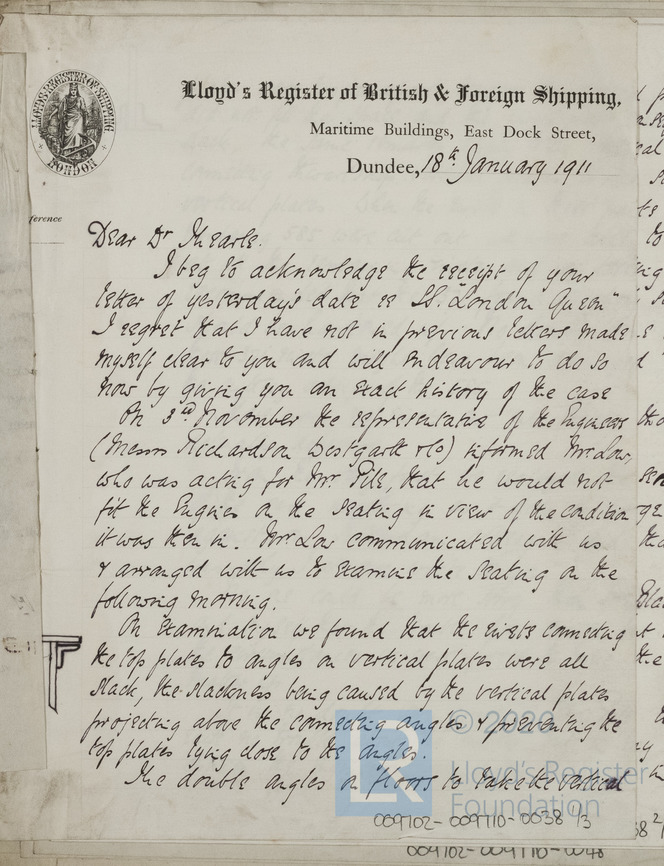 LLOYD'S REGISTER OF SHIPPING
LONDON
Lloyd's Register of British & Foreign Shipping,
Maritime Buildings, East Dock Street,
Dundee, 18th January 1911
ference
Dear Dr Thearle.
I beg to acknowledge the receipt of your
letter of yesterday's date re SS. "London Queen"
I regret that I have not in previous letters made
myself clear to you and will endeavour to do so
now by giving you an exact history of the case
On 3rd November the representative of the Engineers
(Messrs Richardson Westgarth & Co) informed Mr. Low,
who was acting for Mr. Pile, that he would not
fit the Engines on the seating in view of the condition
it was then in. Mr Low communicated with us
& arranged with us to examine the seating on the
following morning.
On examination we found that the rivets connecting
the top plates to angles on vertical plates were all
slack, the slackness being caused by the vertical plates
projecting above the connecting angles & preventing the
top plates lying close to the angles.
The double angles on floors to take the vertical
© 2020
Lloyd's Register
Foundation
009702-009710-0038 /3
009702-009710-0048